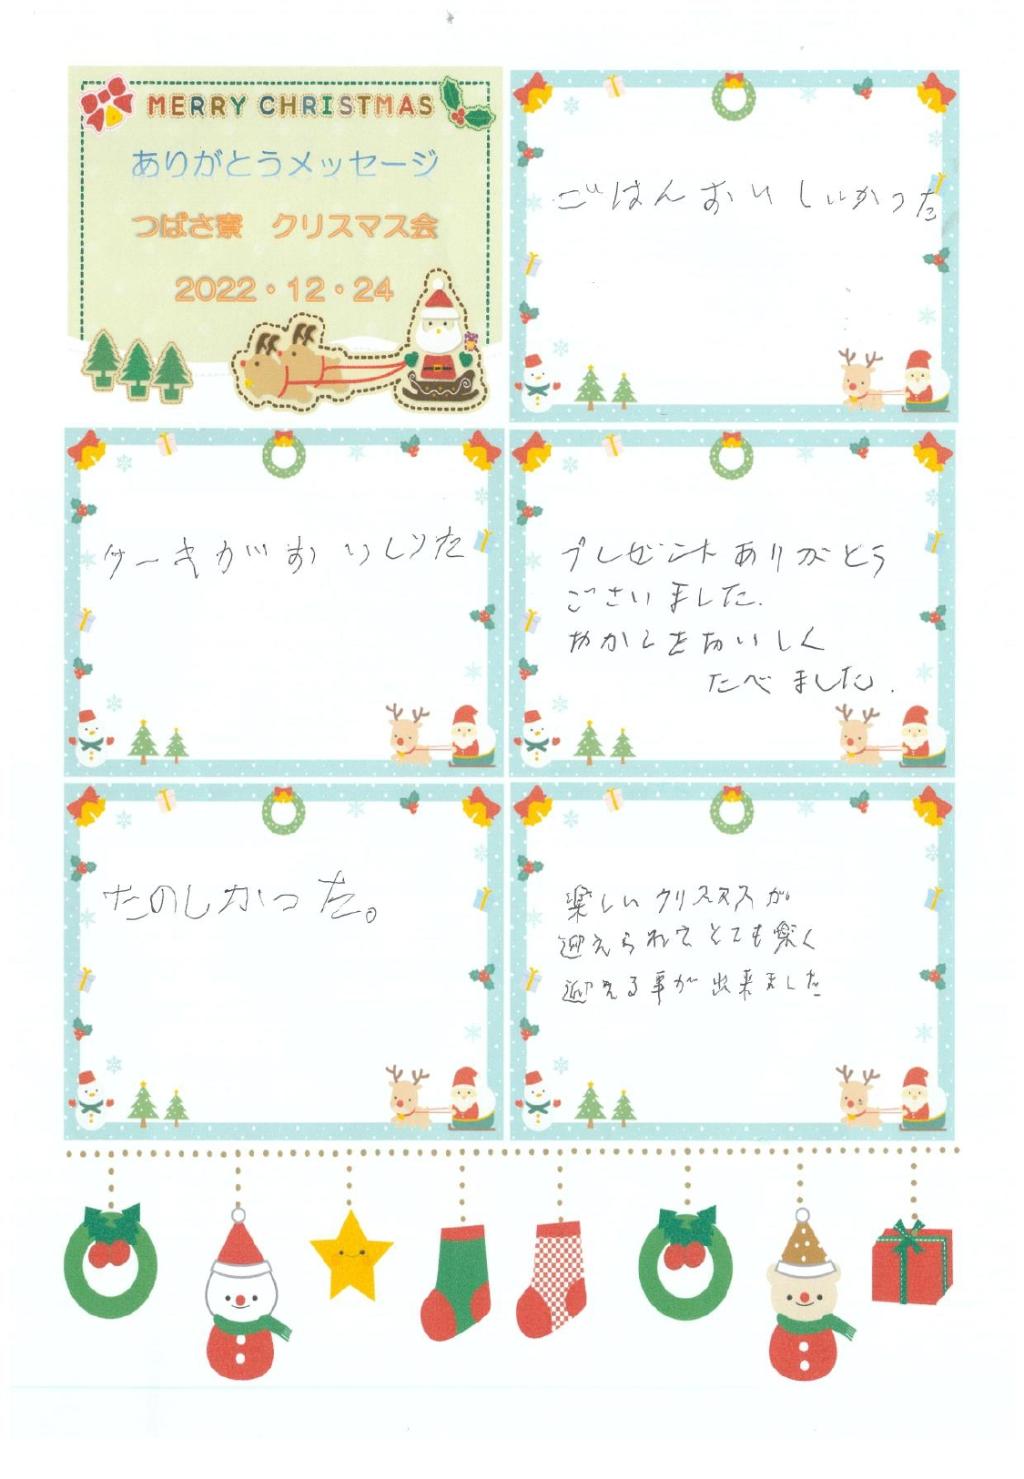 MERRY CHRISTMAS
ありがとうメッセージ
つばさ寮 クリスマス会
2022・12・24
ごはんおいしいかった
ケーキがおいしいた
プレゼントありがとう
ごさいました.
おかしをおいしく
たべました.
たのしかった。
楽しいクリスマスが
迎えられてとても楽く
迎える事が出来ました